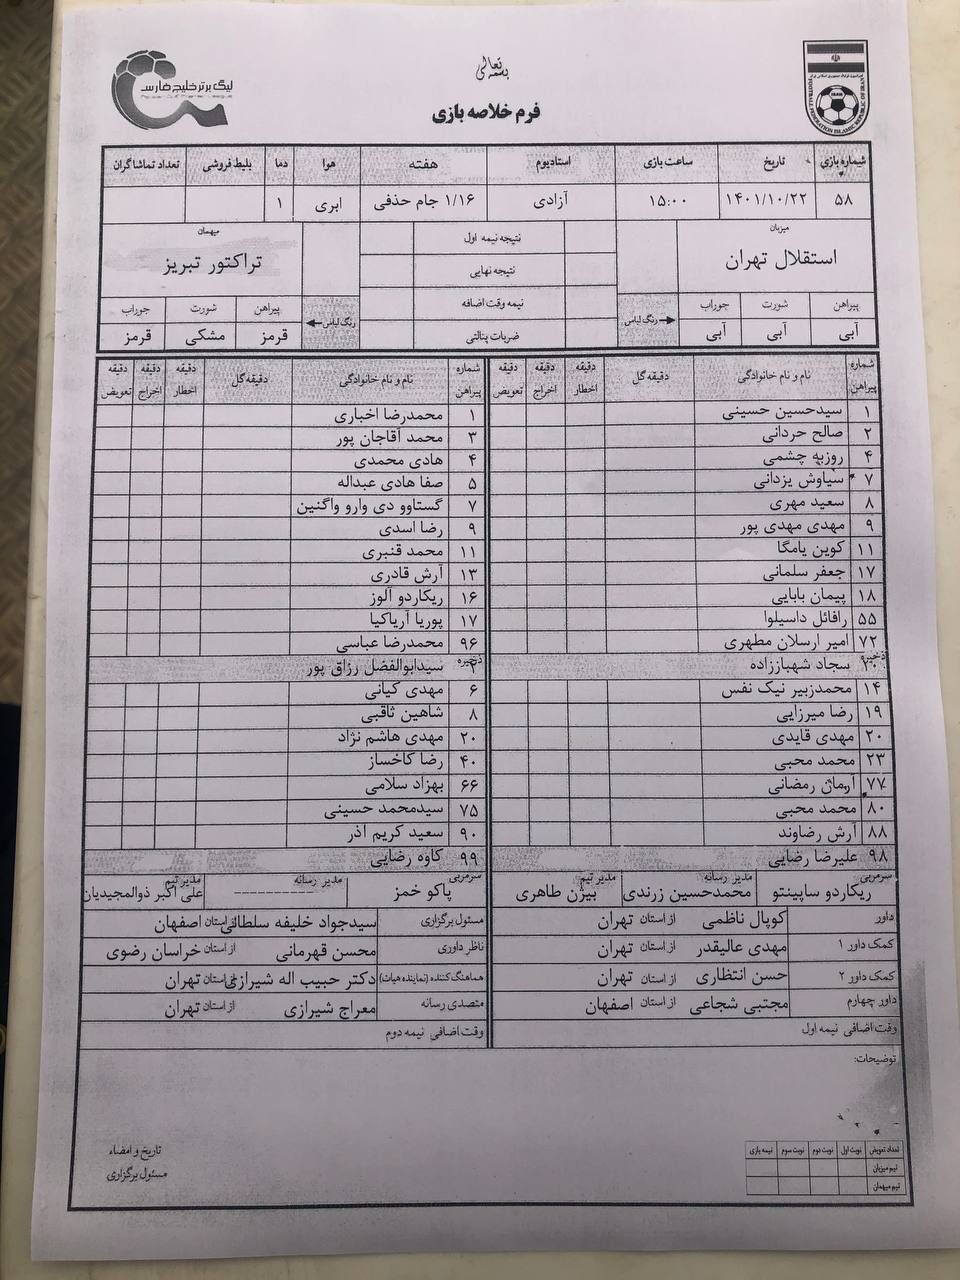 بسمه تعالی
لیگ برتر خلیج فارس
Persian Gulf Premier League
FOOTBALL FEDERATION ISLAMIC REPUBLIC OF IRAN
فرم خلاصه بازی
شماره بازی تاریخ ساعت بازی استادیوم هفته هوا دما بلیط فروشی تعداد تماشاگران
۵۸ ۱۴۰۱/۱۰/۲۲ ۱۵:۰۰ آزادی ۱/۱۶ جام حذفی ابری ۱
میزبان نتیجه نیمه اول میهمان
استقلال تهران نتیجه نهایی تراکتور تبریز
پیراهن شورت جوراب رنگ لباس نیمه وقت اضافه رنگ لباس پیراهن شورت جوراب
آبی آبی آبی ضربات پنالتی قرمز مشکی قرمز
شماره پیراهن نام و نام خانوادگی دقیقه گل دقیقه اخطار دقیقه اخراج دقیقه تعویض شماره پیراهن نام و نام خانوادگی دقیقه گل دقیقه اخطار دقیقه اخراج دقیقه تعویض
۱ سیدحسین حسینی ۱ محمدرضا اخباری
۲ صالح حردانی ۳ محمد آقاجان پور
۴ روزبه چشمی ۴ هادی محمدی
۷ سیاوش یزدانی ۵ صفا هادی عبداله
۸ سعید مهری ۷ گستاوو دی وارو واگنین
۹ مهدی مهدی پور ۹ رضا اسدی
۱۱ کوین یامگا ۱۱ محمد قنبری
۱۷ جعفر سلمانی ۱۳ آرش قادری
۱۸ پیمان بابایی ۱۶ ریکاردو آلوز
۵۵ رافائل داسیلوا ۱۷ پوریا آریاکیا
۷۲ امیر ارسلان مطهری ۹۶ محمدرضا عباسی
ذخیره سجاد شهباززاده ذخیره ۲ سیدابوالفضل رزاق پور
۱۴ محمدزبیر نیک نفس ۶ مهدی کیانی
۱۹ رضا میرزایی ۸ شاهین ثاقبی
۲۰ مهدی قایدی ۲۰ مهدی هاشم نژاد
۲۳ محمد محبی ۴۰ رضا کاخساز
۷۷ آرمان رمضانی ۶۶ بهزاد سلامی
۸۰ محمد محبی ۷۵ سیدمحمد حسینی
۸۸ آرش رضاوند ۹۰ سعید کریم آذر
۹۸ علیرضا رضایی ۹۹ کاوه رضایی
سرمربی ریکاردو ساپینتو مدیر رسانه محمدحسین زرندی مدیر تیم بیژن طاهری سرمربی پاکو خمز مدیر رسانه ------------ مدیر تیم علی اکبر ذوالمجیدیان
داور کوپال ناظمی از استان تهران مسئول برگزاری سیدجواد خلیفه سلطانی از استان اصفهان
کمک داور ۱ مهدی عالیقدر از استان تهران ناظر داوری محسن قهرمانی از استان خراسان رضوی
کمک داور ۲ حسن انتظاری از استان تهران هماهنگ کننده (نماینده هیات) دکتر حبیب اله شیرازی از استان تهران
داور چهارم مجتبی شجاعی از استان اصفهان متصدی رسانه معراج شیرازی از استان تهران
وقت اضافی نیمه اول وقت اضافی نیمه دوم
توضیحات:
تعداد تعویض نوبت اول نوبت دوم نوبت سوم نیمه بازی
تیم میزبان
تیم میهمان
تاریخ و امضاء
مسئول برگزاری